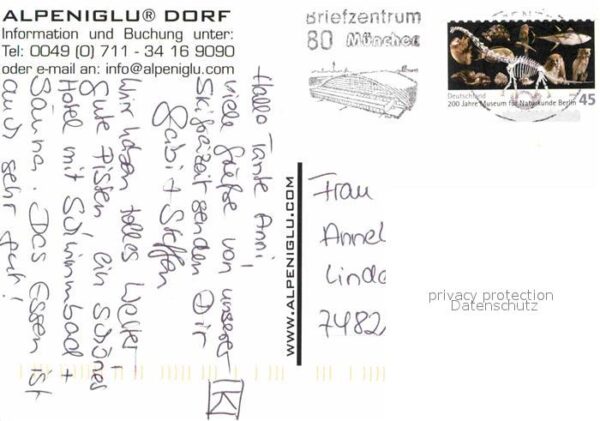 ALPENIGLU® DORF
Information und Buchung unter:
Tel: 0049 (0) 711 - 34 16 9090
oder e-mail an: info@alpeniglu.com
Hallo Tante Anni,
viele Grüße von unserer
Skifreizeit senden Dir
Gabi + Steffen
Wir haben tolles Wetter,
gute Pisten, ein schönes
Hotel mit Schwimmbad +
Sauna. Das Essen ist
auch sehr gut!
K
WWW.ALPENIGLU.COM
Briefzentrum
80 München
Deutschland
200 Jahre Museum für Naturkunde Berlin
45
Frau
Annel
Linde
7482
privacy protection
Datenschutz